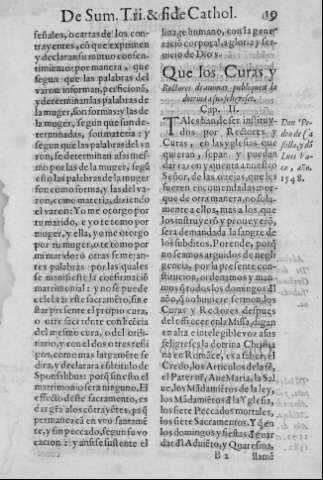 De Sum. Tri. & fide Cathol. 19
señales, o cartas de los con-
trayentes, cõ que exprimen
y declaran su mutuo consen-
timiento: por manera, que
segun que las palabras del
varon informan, perficionã,
y determinan las palabras de
la muger, son forma: y las de
la muger, segun que son de-
terminadas, son materia: y
segun que las palabras del va-
ron, se determinan assi mes-
mo por las de la muger, segũ
esto las palabras de la muger
son como forma, y las del va-
ron, como materia, diziendo
el varon: Yo me otorgo por
tu marido, e yo te tomo por
muger, y ella, yo me otorgo
por tu muger, o te tomo por
mi marido: otras semejan-
tes palabras por las quales
se manifieste la confirmació
matrimonial: y no se puede
celebrar este sacramẽto, sin e-
star presente el propio cura,
o otro sacerdote con licẽcia
del mesmo cura, o del Ordi-
nario, y con el dos o tres testi-
gos, como mas largamẽte se
dira, y declarara en el titulo de
Sponsalibus: porq̃ sin esto el
matrimonio sera ninguno. El
effecto deste sacramento, es
dar grã a los cõtrayẽtes, pa q̃
permanezcã en vro santamẽ
te, y sin peccado, segun su vo
cacion: y ansi se sustente el
linage humano, con la gene-
racio corporal, a gloria y ser-
uicio de Dios.
Que los Curas y
Rectores de animas, publiquen la
doctrina a sus feligreses.
Cap. II.
TAles han de ser instituy-
dos por Rectores y
Curas, en las yglesias, que
quieran, sepan, y puedan
dar razon y quenta a nuestro
Señor, de las ouejas, que les
fueren encomendadas: mor-
que de otra manera, no sola-
mente a ellos, mas a los, que
los instituyerõ, y proueyerõ,
sera demandada la sangre de
los subditos. Porende, porq̃
no seamos arguidos de negli
gencia, por la presente con-
stitucion, ordenamos y man
mos q̃ todos los domingos d̃l
año, q̃ no huuiere sermon, los
Curas y Rectores, despues
del offrecer en la Missa, digan
en alta e inteligible voz a sus
feligreses la doctrina Christia
na en Romãce, es a saber, el
Credo, los Articulos de la fe,
el Pater nr̃, Aue Maria, la Sal
ue, los Mãdamiẽtos de la ley,
los Mãdamiẽtos d̃ la Yglesia,
los siete Peccados mortales,
los siete Sacramentos. Y q̃ en
los domingos y fiestas d̃ guar
dar d̃l Aduiẽto, y Quaresma,
Don Pe-
dro de Ca
stilla, y dõ
Luis Va-
ca, año.
1548.
B 2 llamẽ